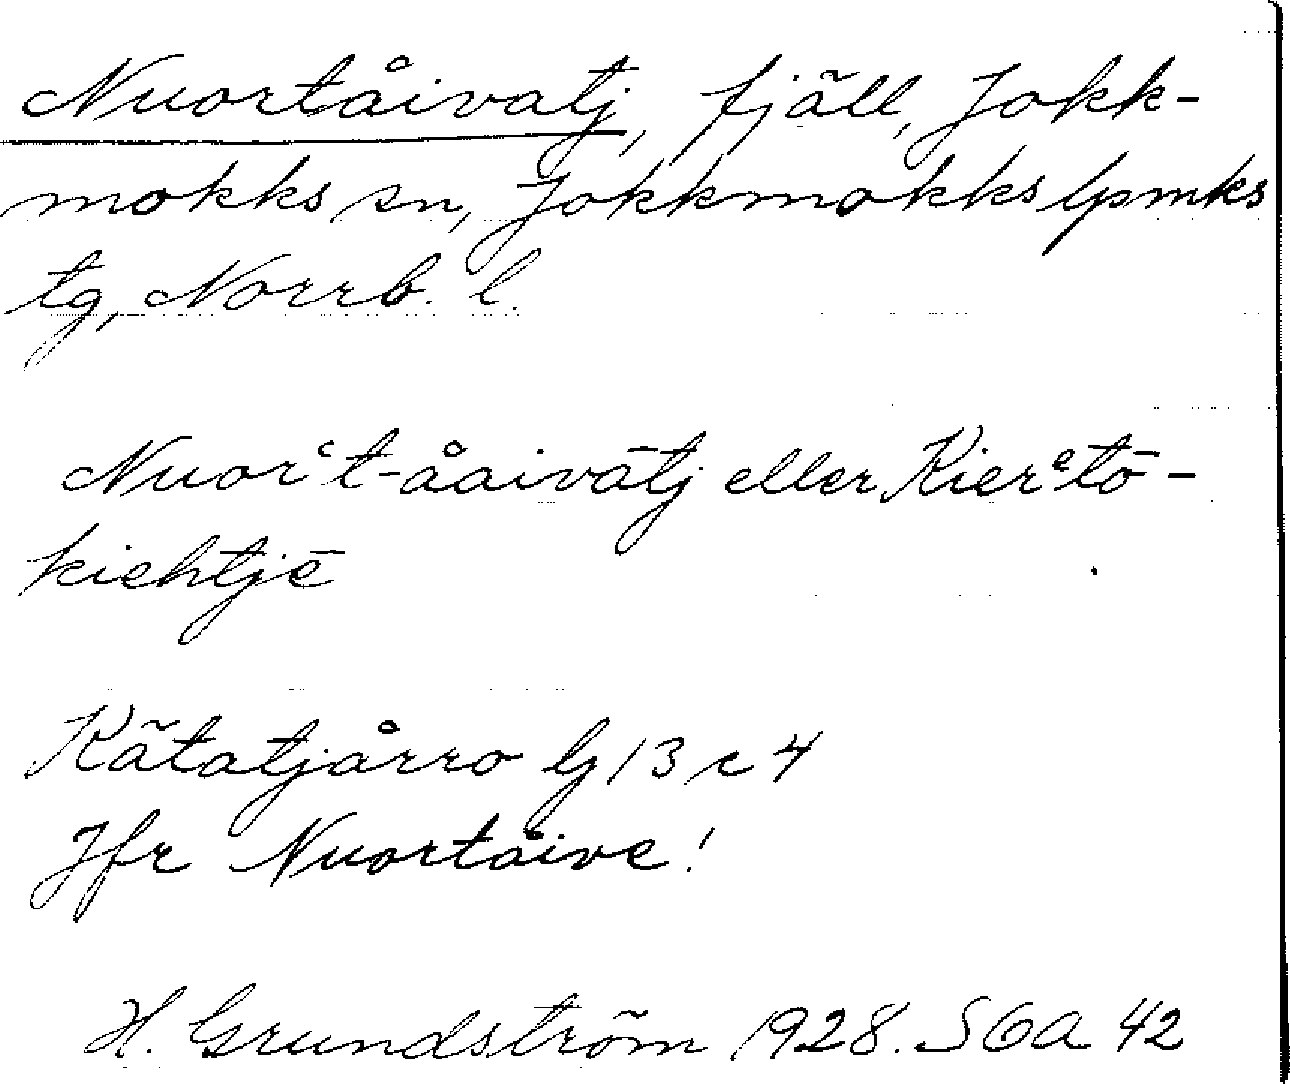 Nuortåivatj, fjäll, Jokk-
mokks sn, Jokkmokks lpmks
tg, Norrb. l.
Nuorʿt-åaivātj eller Kierᵉtō-
kiehtjē
Kātatjårro bl 13 c 4
Jfr Nuortåive!
H. Grundström 1928. SOA 42